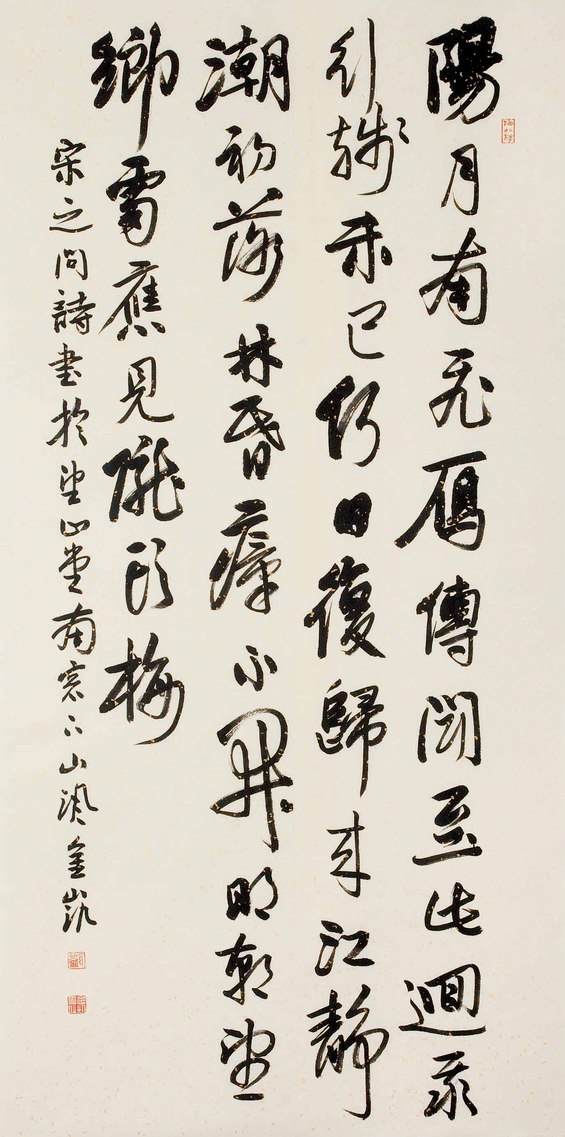 陽月南飛鴈傳聞至此迴我
行殊未已何日復歸来江靜
潮初落林昏瘴不開明朝望
鄉處應見隴頭梅
宋之問詩書於望山堂南窓下山金